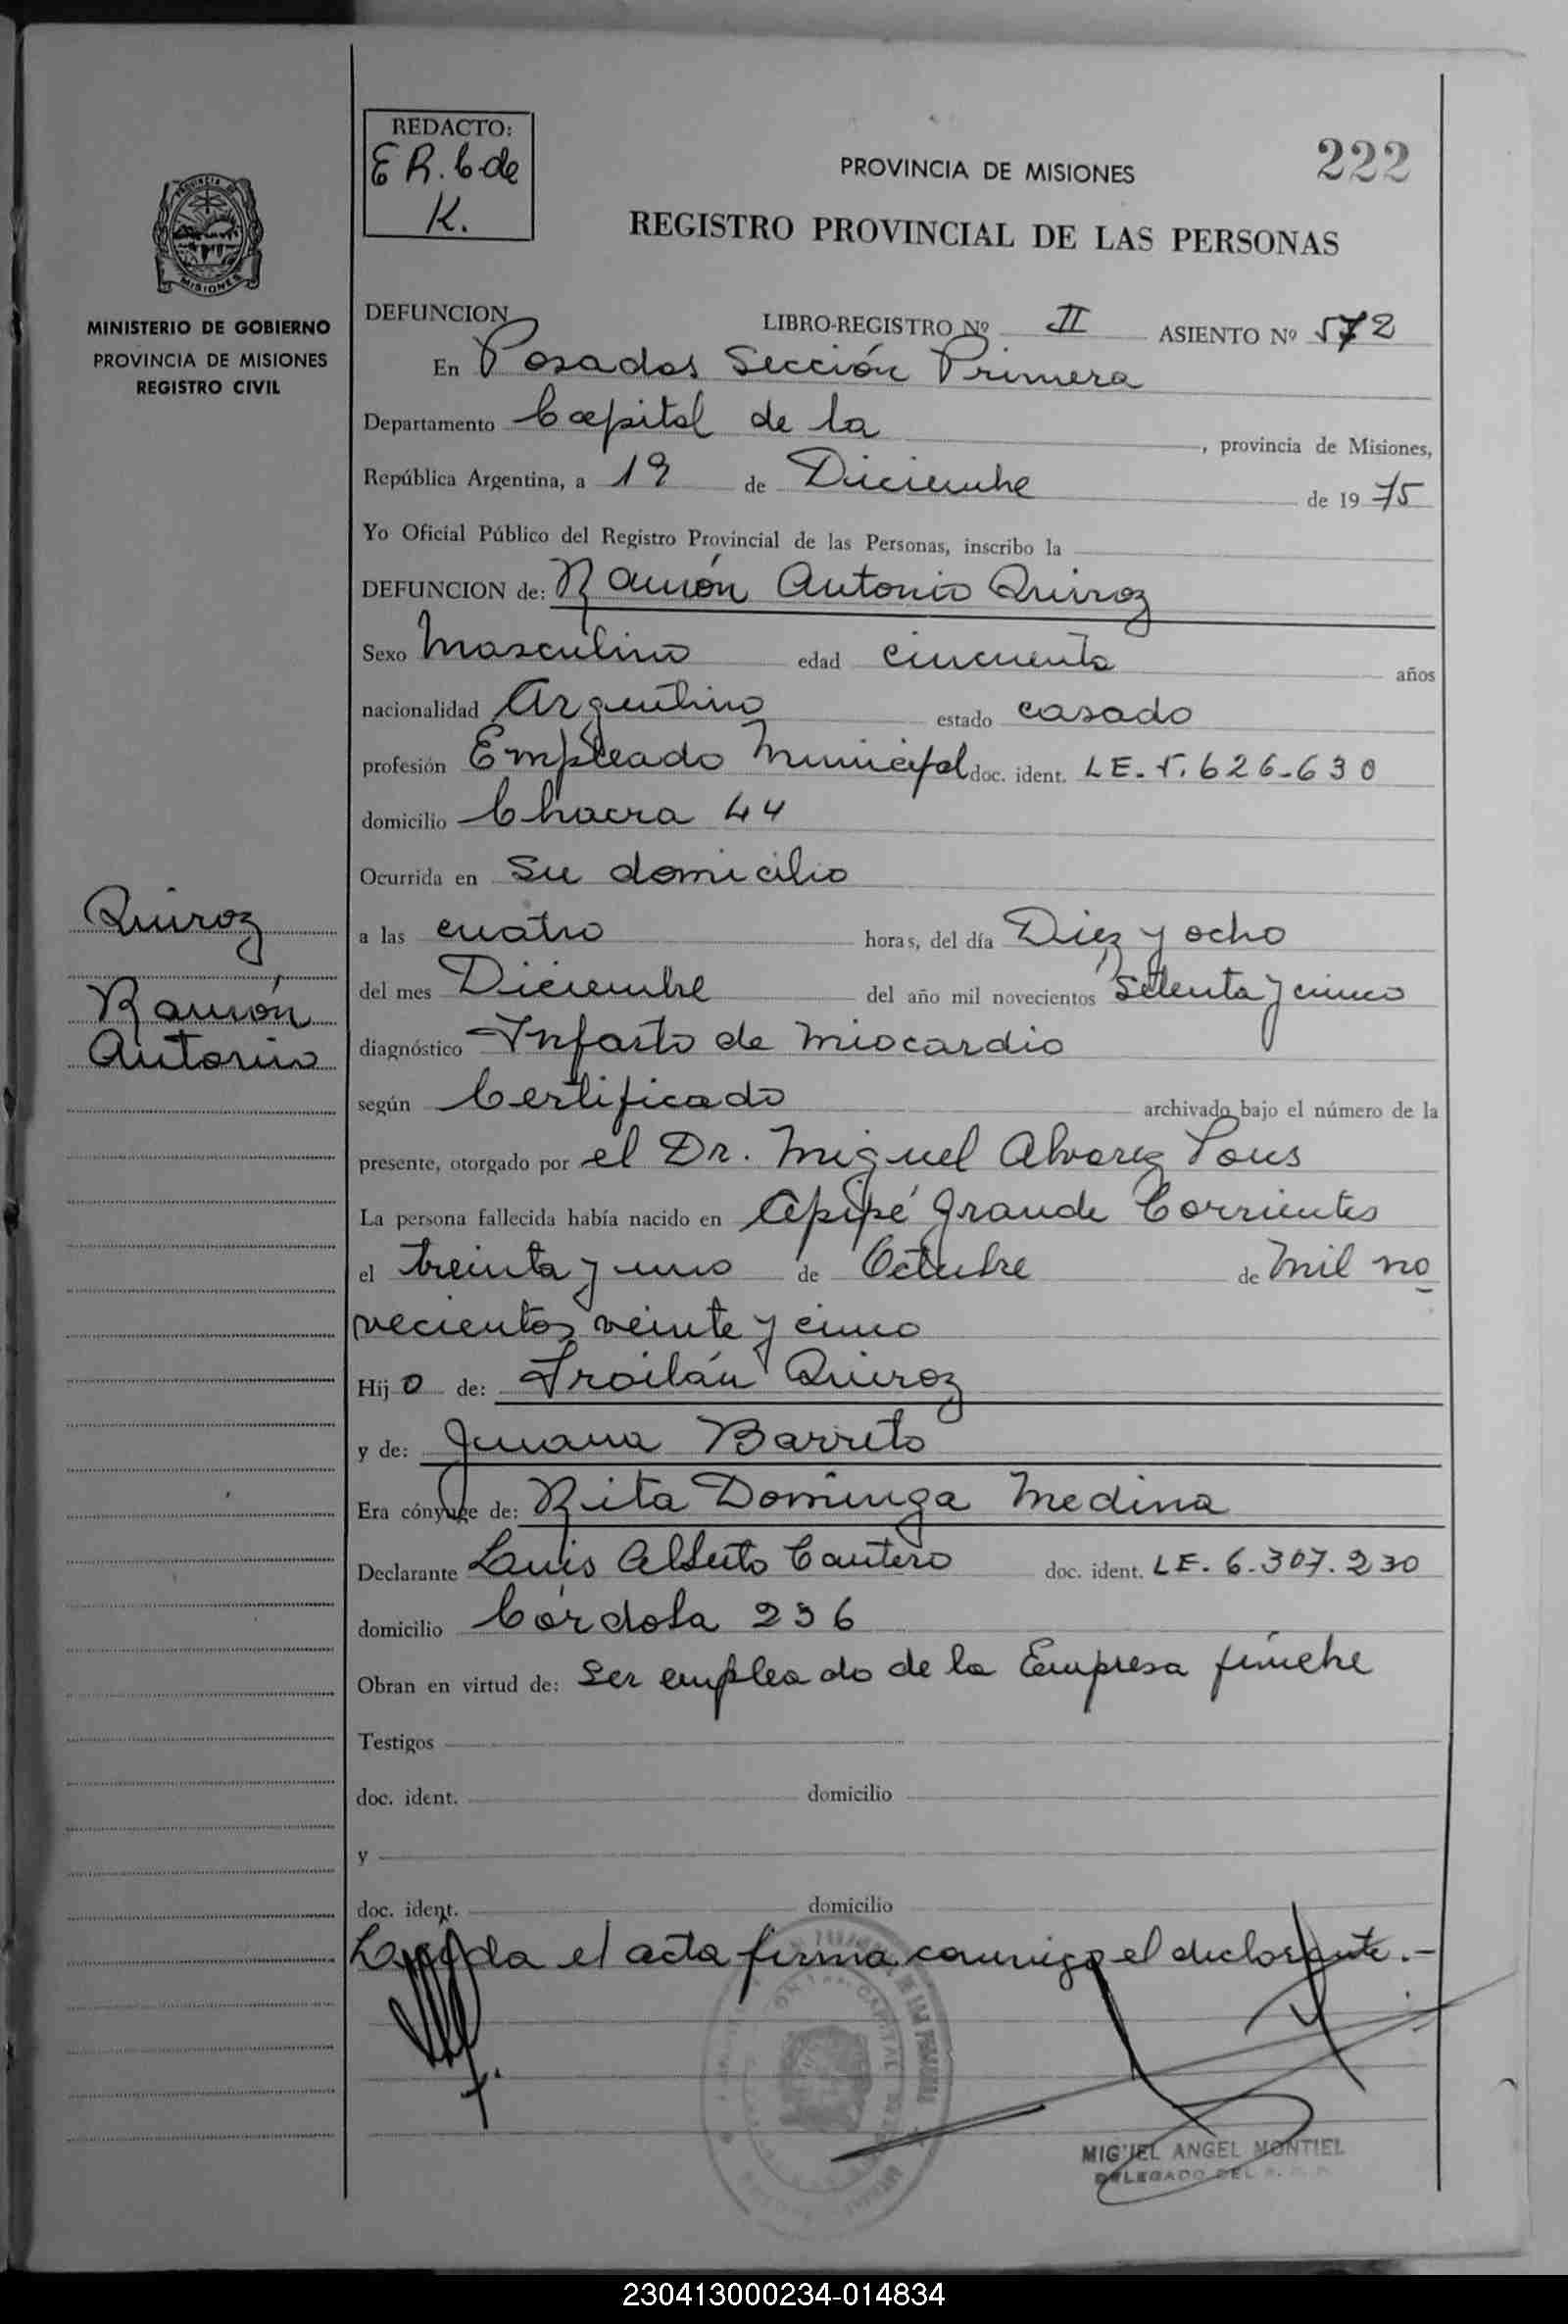 REDACTO:
E R. C. de
K.
222
PROVINCIA DE MISIONES
REGISTRO PROVINCIAL DE LAS PERSONAS
MISIONES
MINISTERIO DE GOBIERNO
PROVINCIA DE MISIONES
REGISTRO CIVIL
DEFUNCION
LIBRO-REGISTRO Nº II ASIENTO Nº 572
En Posadas Sección Primera
Departamento Capital de la , provincia de Misiones,
República Argentina, a 19 de Diciembre de 1975
Yo Oficial Público del Registro Provincial de las Personas, inscribo la
DEFUNCION de: Ramón Antonio Quiroz
Sexo Masculino edad cincuenta años
nacionalidad Argentino estado casado
profesión Empleado Municipal doc. ident. LE. 5.626-630
domicilio Chacra 44
Ocurrida en Su domicilio
a las cuatro horas, del día Diez y ocho
del mes Diciembre del año mil novecientos Setenta y cinco
diagnóstico Infarto de Miocardio
según Certificado archivado bajo el número de la
presente, otorgado por el Dr. Miguel Alvarez Pons
La persona fallecida había nacido en Apipé Grande Corrientes
el treinta y uno de Octubre de Mil no
vecientos veinte y cinco
Hijo de: Froilán Quiroz
y de: Juana Barreto
Era cónyuge de: Rita Dominga Medina
Declarante Luis Alberto Cantero doc. ident. LE. 6.307.230
domicilio Córdoba 236
Obran en virtud de: Ser empleado de la Empresa fúnebre
Testigos
doc. ident. domicilio
y
doc. ident. domicilio
Leída el acta firma conmigo el declarante.-
Quiroz
Ramón
Antonio
MIGUEL ANGEL MONTIEL
DELEGADO DEL
230413000234-014834